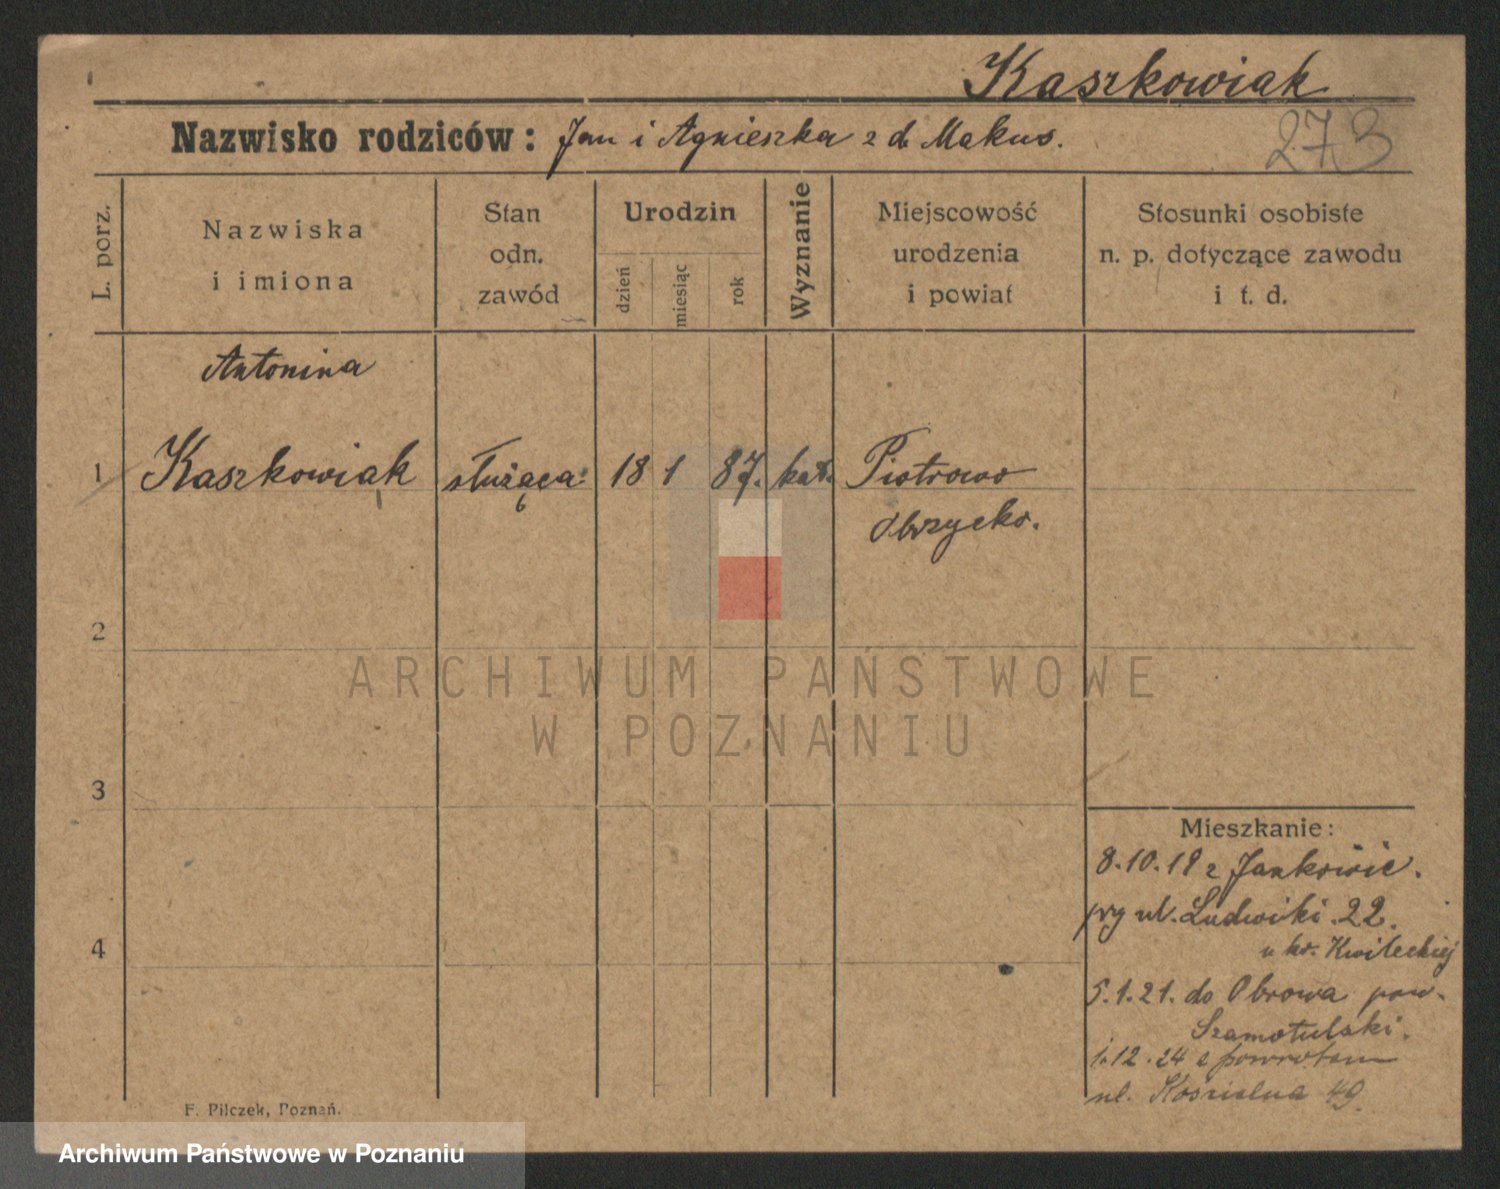 Kaszkowiak
Nazwisko rodziców: Jan i Agnieszka z d. Makus.
273
L. porz.
Nazwiska
i imiona
Stan
odn.
zawód
Urodzin
dzień
miesiąc
rok
Wyznanie
Miejscowość
urodzenia
i powiat
Stosunki osobiste
n. p. dotyczące zawodu
i t. d.
Antonina
1 Kaszkowiak służąca 18 1 87. kat. Piotrowo
Obrzycko.
2
3
4
ARCHIWUM PAŃSTWOWE
W POZNANIU
Mieszkanie:
8.10.19 z Jankowic.
przy ul. Ludwiki 22.
u hr. Kwileckiej
5.1.21. do Obrowa pow.
Szamotulski.
1.12.24 z powrotem
ul. Kościelna 49
F. Pilczek, Poznań.
Archiwum Państwowe w Poznaniu